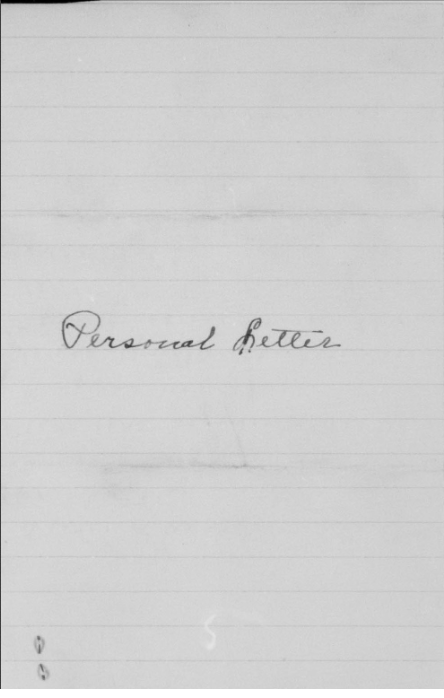 Personal Letter
5